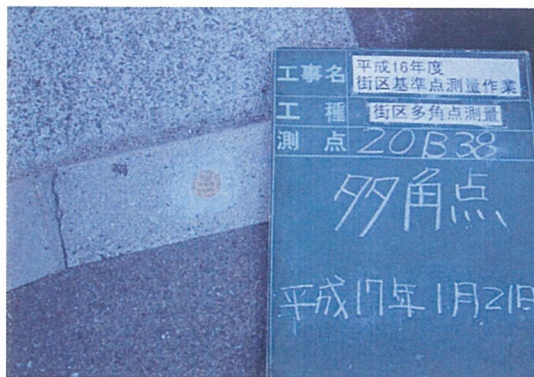 工事名
平成16年度
街区基準点測量作業
工種 街区多角点測量
測点 20B38
多角点
平成17年1月21日